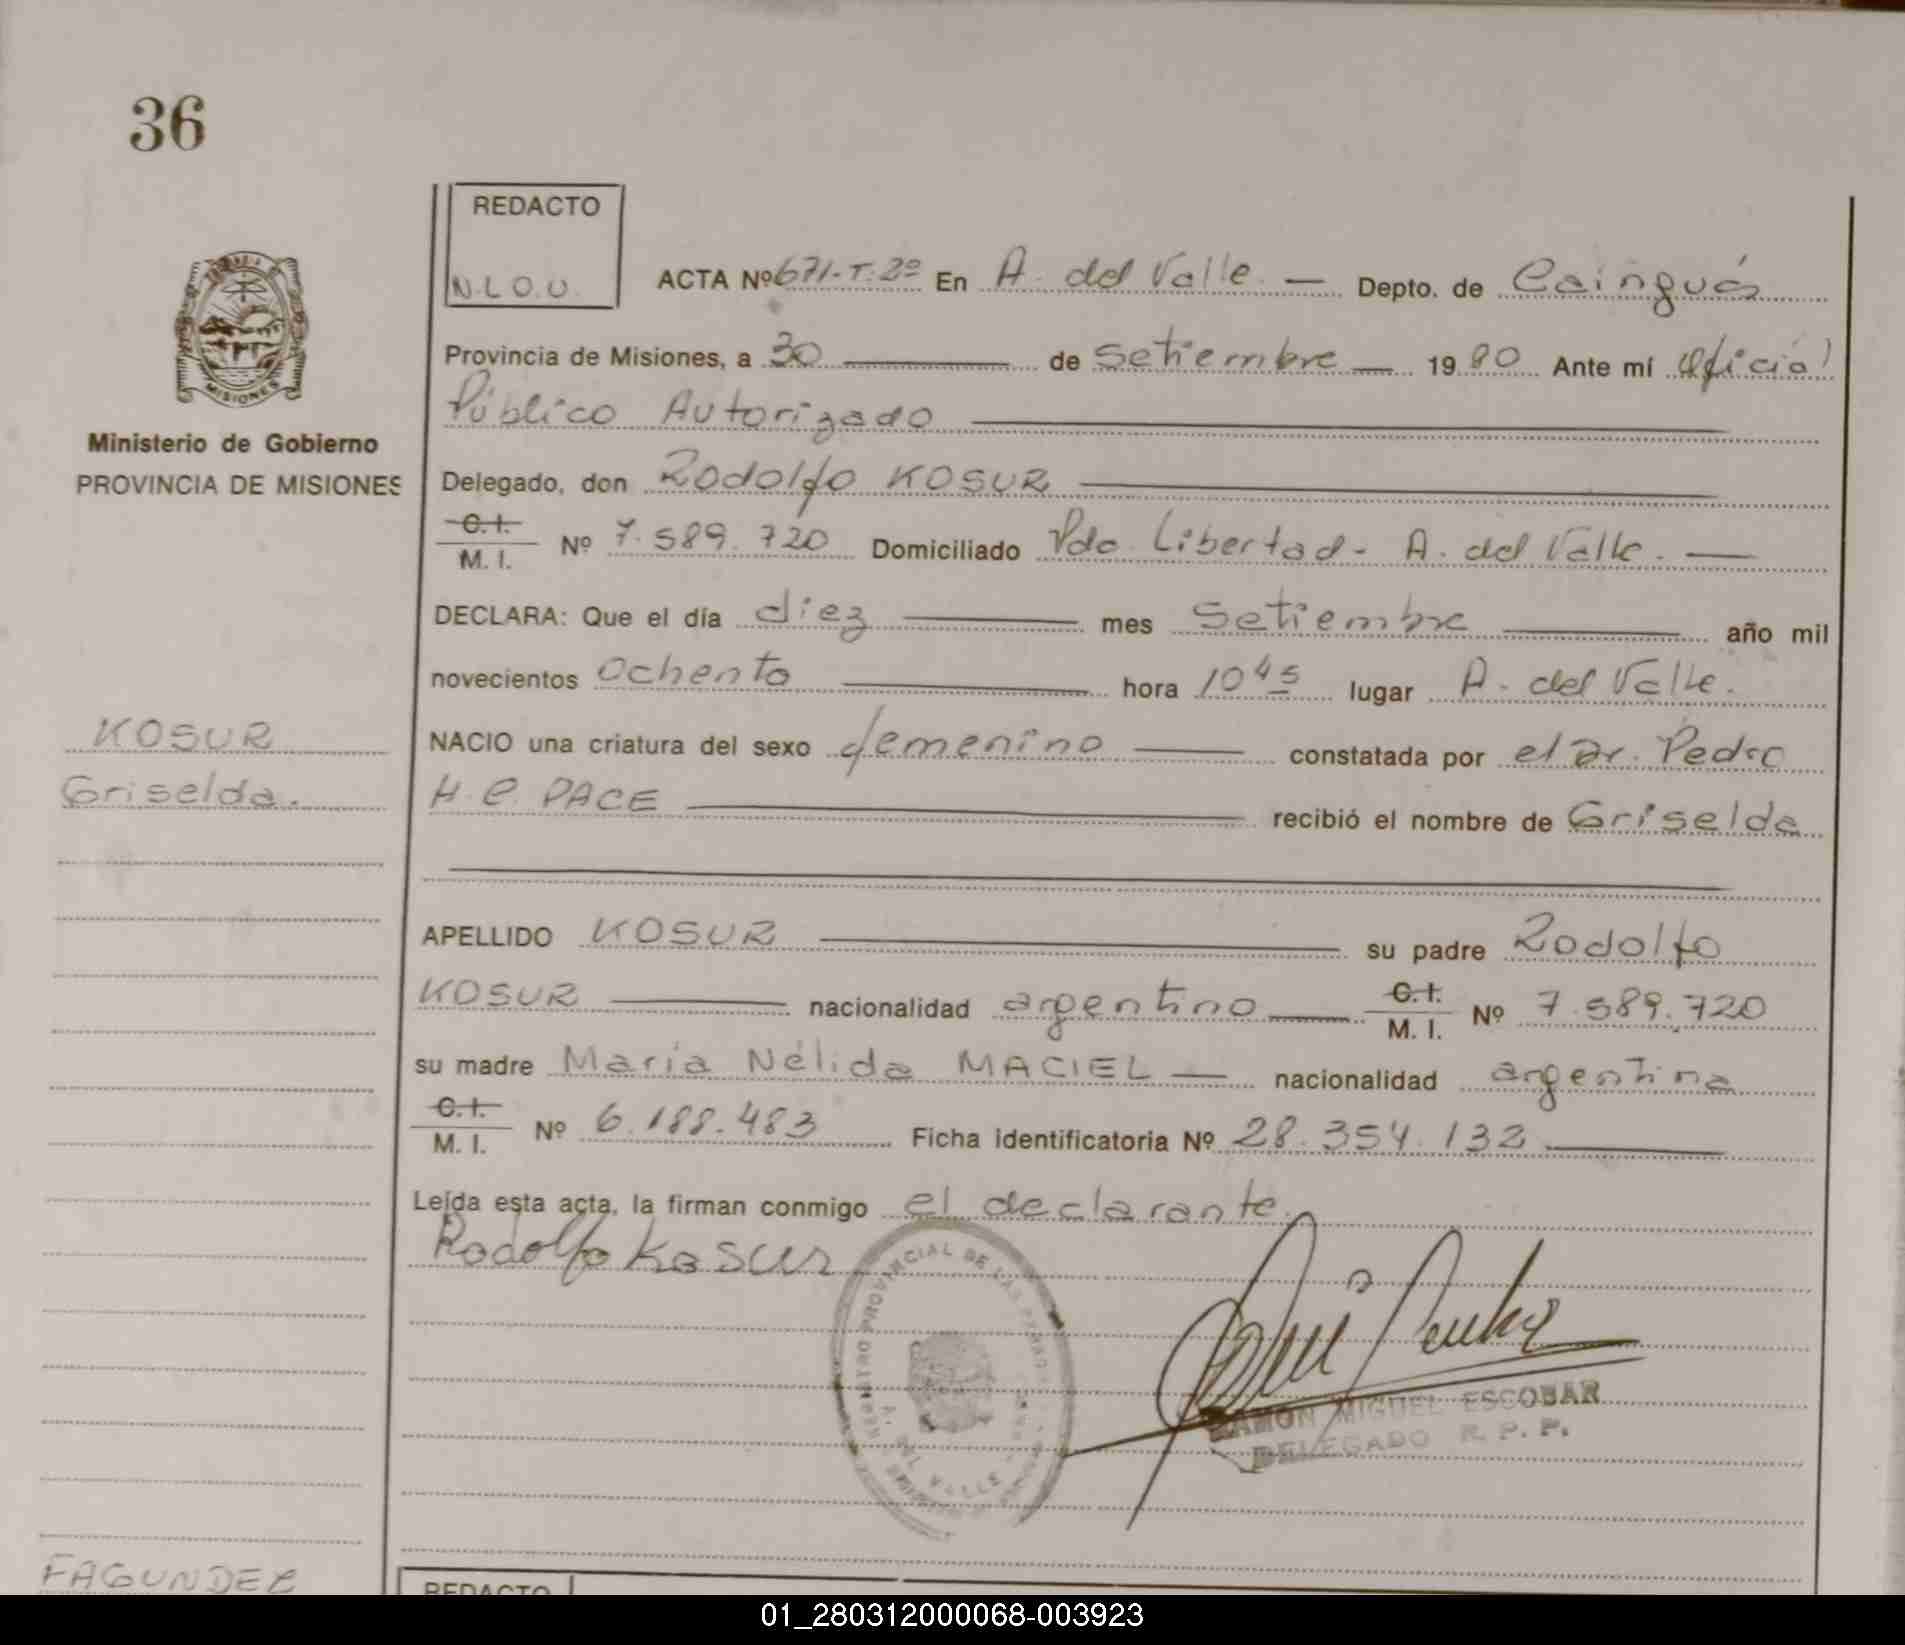 36
REDACTO
N.L.O.U.
ACTA Nº 671-T:2º En A. del Valle. — Depto. de Cainguás
Provincia de Misiones, a 30 — de Setiembre — 1980 Ante mí Oficial
Público Autorizado
Ministerio de Gobierno
PROVINCIA DE MISIONES
MISIONES
Delegado, don Rodolfo KOSUR
C.I.
M. I. Nº 7.589.720 Domiciliado Pdo. Libertad - A. del Valle. —
DECLARA: Que el día diez — mes Setiembre — año mil
novecientos Ochenta — hora 10 45 lugar A. del Valle.
KOSUR
Griselda.
NACIO una criatura del sexo femenino — constatada por el Dr. Pedro
H. C. PACE — recibió el nombre de Griselda
APELLIDO KOSUR — su padre Rodolfo
KOSUR — nacionalidad argentino — C.I. M. I. Nº 7.589.720
su madre María Nélida MACIEL — nacionalidad argentina
C.I.
M. I. Nº 6.188.483 Ficha identificatoria Nº 28.354.132 —
Leída esta acta, la firman conmigo el declarante.
Rodolfo Kosur
PROVINCIAL DE LAS
A. DEL VALLE
RAMON MIGUEL ESCOBAR
DELEGADO R. P. P.
FAGUNDEZ
REDACTO
01_280312000068-003923